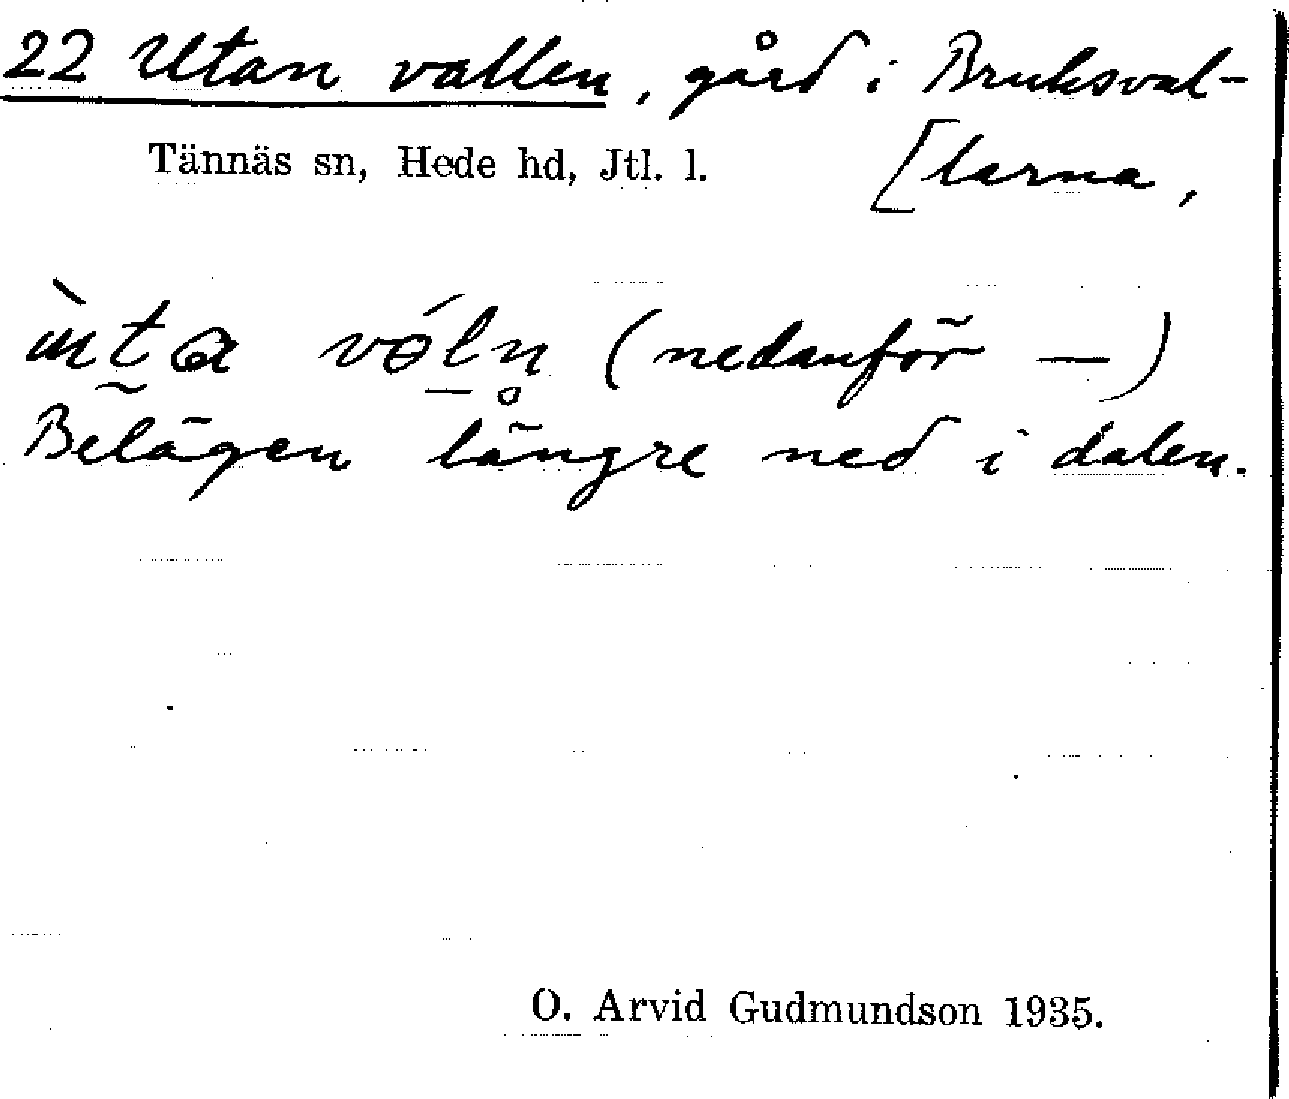 22 Utan vallen, gård i Bruksval-
Tännäs sn, Hede hd, Jtl. l.
[larna,
(nedanför —)
Belägen längre ned i dalen.
O. Arvid Gudmundson 1935.